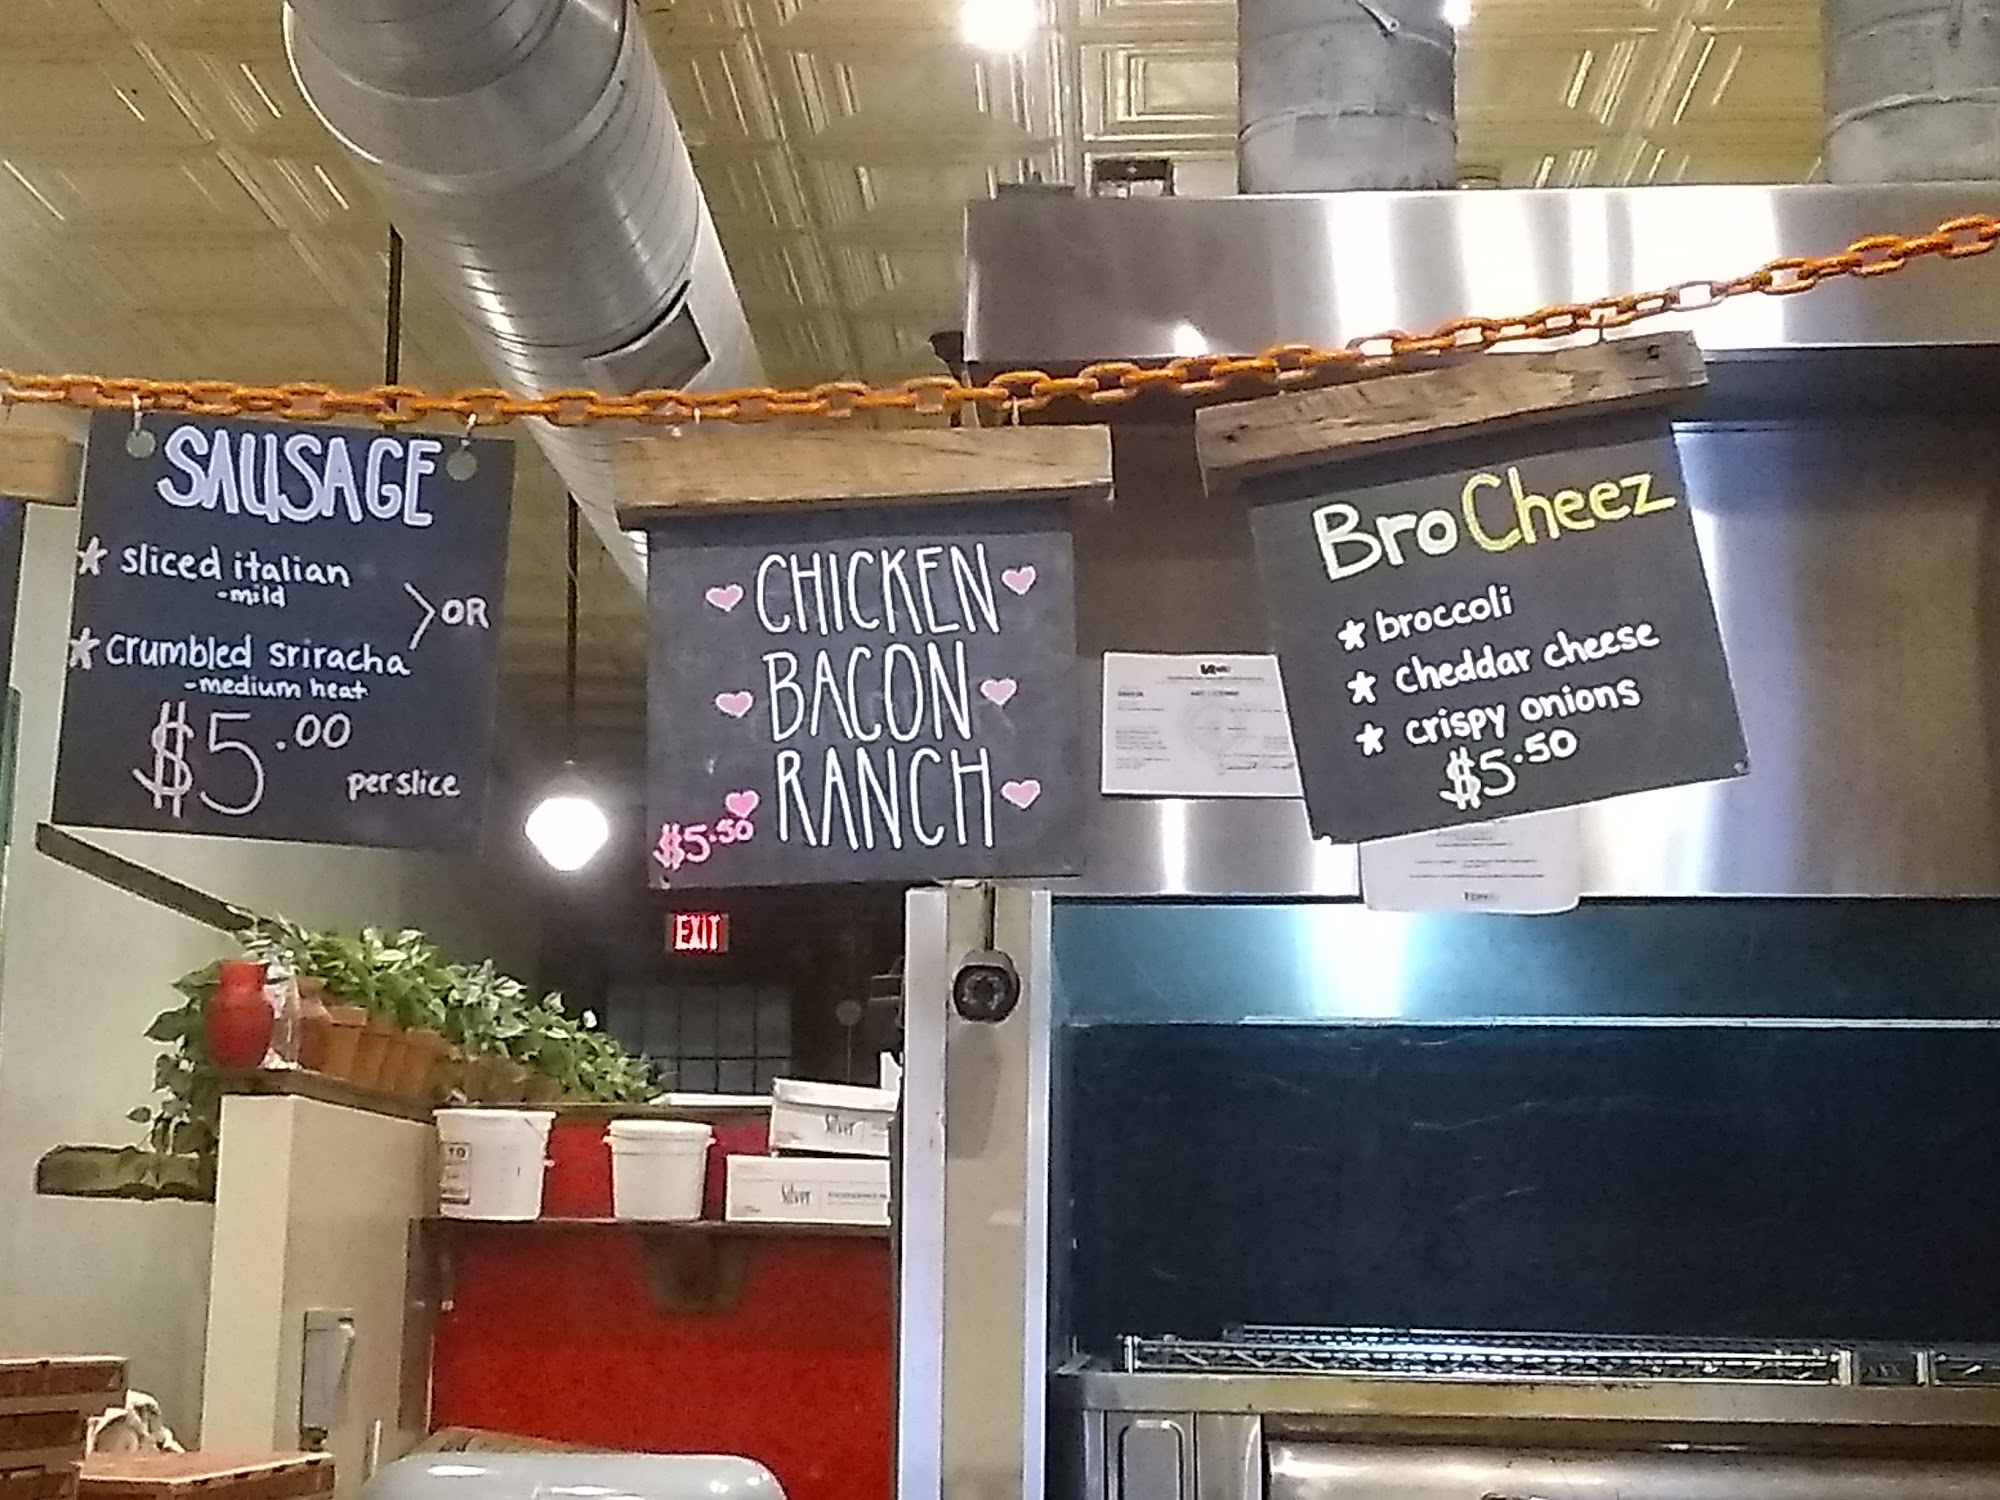 SAUSAGE
sliced italian
-mild
OR
crumbled sriracha
-medium heat
$5.00
per slice
CHICKEN
BACON
RANCH
$5.50
BroCheez
broccoli
cheddar cheese
crispy onions
$5.50
EXIT
Silver
Silver
10